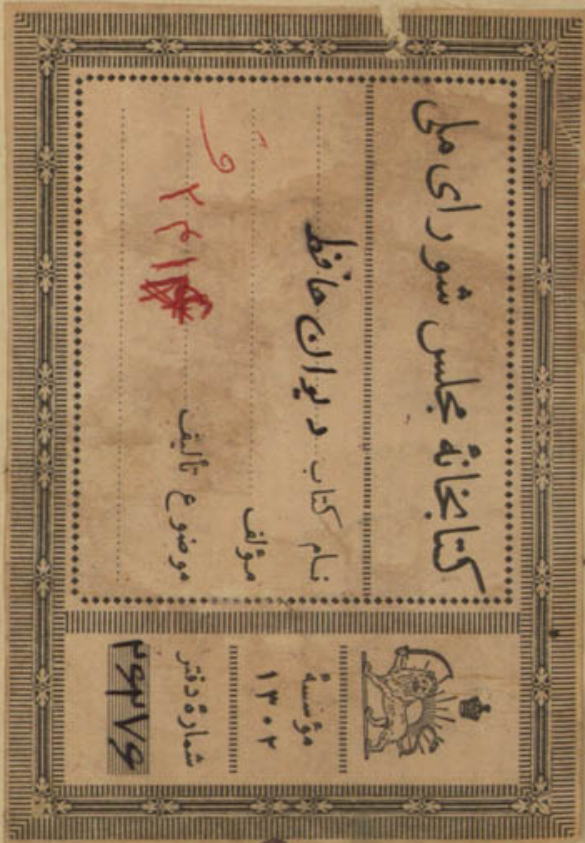 کتابخانهٔ مجلس شورای ملی
نام کتاب دیوان حافظ
مؤلف
موضوع تألیف
مؤسسهٔ
۱۳۰۲
شمارهٔ دفتر